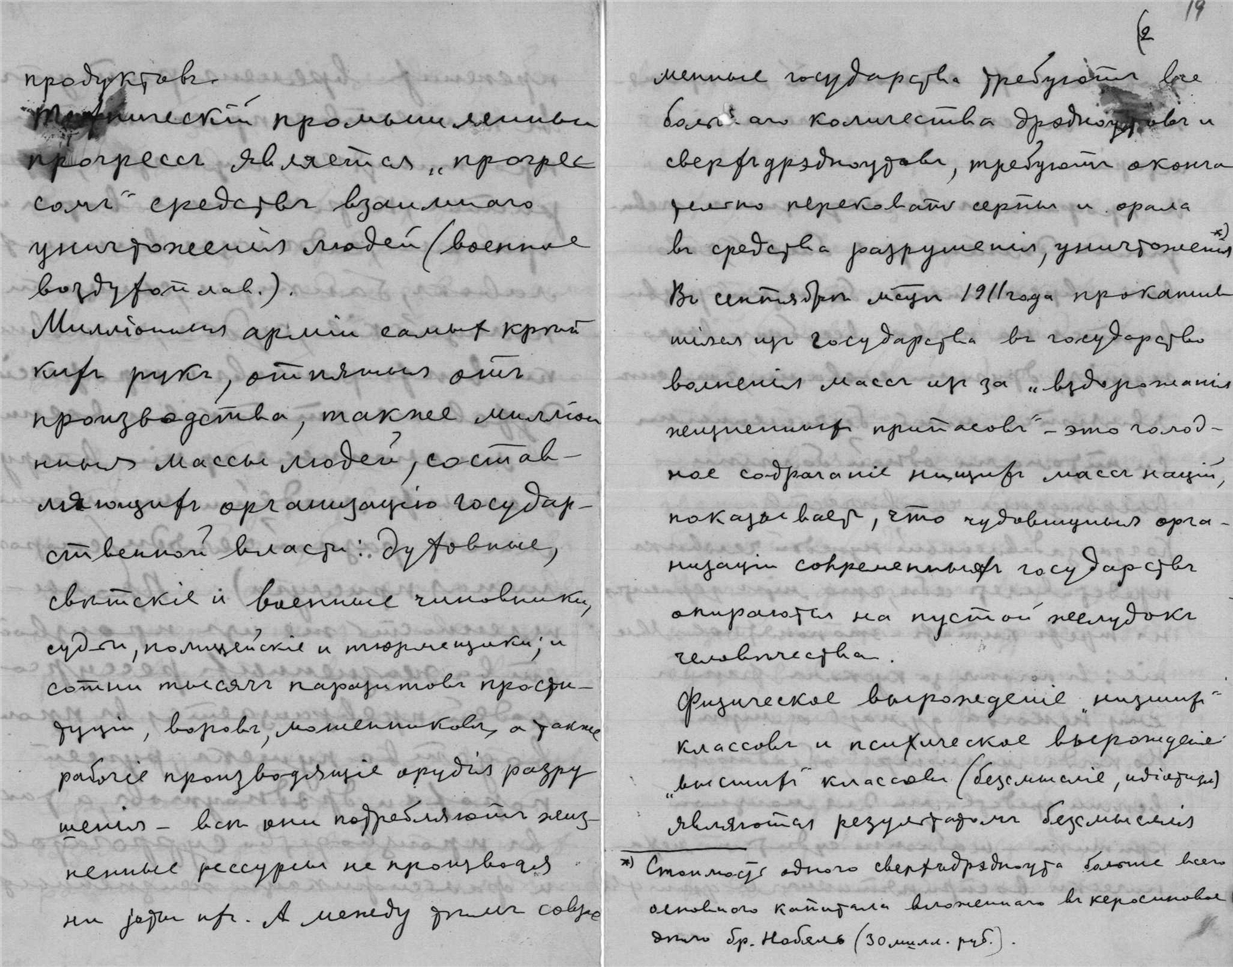 продуктовъ.
Техническій промышленный
прогрессъ является „прогрес
сомъ“ средствъ взаимнаго
уничтоженія людей (военное
воздухоплав.).
Милліонныя арміи самыхъ крѣп
кихъ рукъ, отнятыя отъ
производства, также милліон
ныя массы людей, состав-
ляющихъ организацію государ-
ственной власти: духовные,
свѣтскіе и военные чиновники,
судьи, полицейскіе и тюремщики; и
сотни тысячъ паразитовъ прости-
туціи, воровъ, мошенниковъ, а также
рабочіе производящіе орудія разру
шенія – всѣ они потребляютъ жиз-
ненные рессурсы не производя
ни іоты ихъ. А между тѣмъ совре
19
(2
менные государства требуютъ все
большаго количества дрэдноутовъ и
сверхдрэдноутовъ, требуютъ оконча
тельно перековать серпы и орала
въ средства разрушенія, уничтоженія *)
Въ сентябрѣ мѣсяцѣ 1911 года прокатив
шіяся изъ государства въ государство
волненія массъ из за „вздорожанія
жизненныхъ припасовъ“ – это голод-
ное содраганіе нищихъ массъ націй,
показываетъ, что чудовищныя орга-
низаціи современныхъ государствъ
опираются на пустой желудокъ
человѣчества.
Физическое вырожденіе „низшихъ“
классовъ и психическое вырожденіе
„высшихъ“ классовъ (безмысліе, идіотизмъ)
являются результатомъ безмыслія
*) Стоимость одного сверхдрэдноута больше всего
основного капитала вложеннаго въ керосиновое
дѣло бр. Нобель (30 милл. руб.).